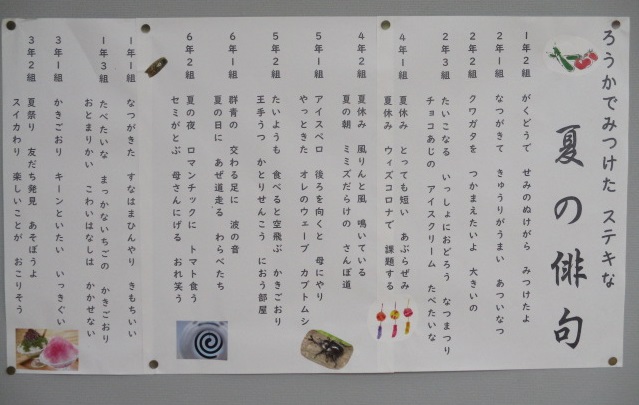 ろうかでみつけた ステキな
夏の俳句
1年2組 がくどうで せみのぬけがら みつけたよ
2年1組 なつがきて きゅうりがうまい あついなつ
2年2組 クワガタを つかまえたいよ 大きいの
2年3組 たいこなる いっしょにおどろう なつまつり
チョコあじの アイスクリーム たべたいな
4年1組 夏休み とっても短い あぶらぜみ
夏休み ウィズコロナで 課題する
4年2組 夏休み 風りんと風 鳴いている
夏の朝 ミミズだらけの さんぽ道
5年1組 アイスペロ 後ろを向くと 母にやり
やっときた オレのウェーブ カブトムシ
5年2組 たいようも 食べると空飛ぶ かきごおり
王手うつ かとりせんこう におう部屋
6年1組 群青の 交わる足に 波の音
夏の日に あぜ道走る わらべたち
6年2組 夏の夜 ロマンチックに トマト食う
セミがとぶ 母さんにげる おれ笑う
1年1組 なつがきた すなはまひんやり きもちいい
1年3組 たべたいな まっかないちごの かきごおり
おとまりかい こわいはなしは かかせない
3年1組 かきごおり キーンといたい いっきぐい
3年2組 夏祭り 友だち発見 あそぼうよ
スイカわり 楽しいことが おこりそう